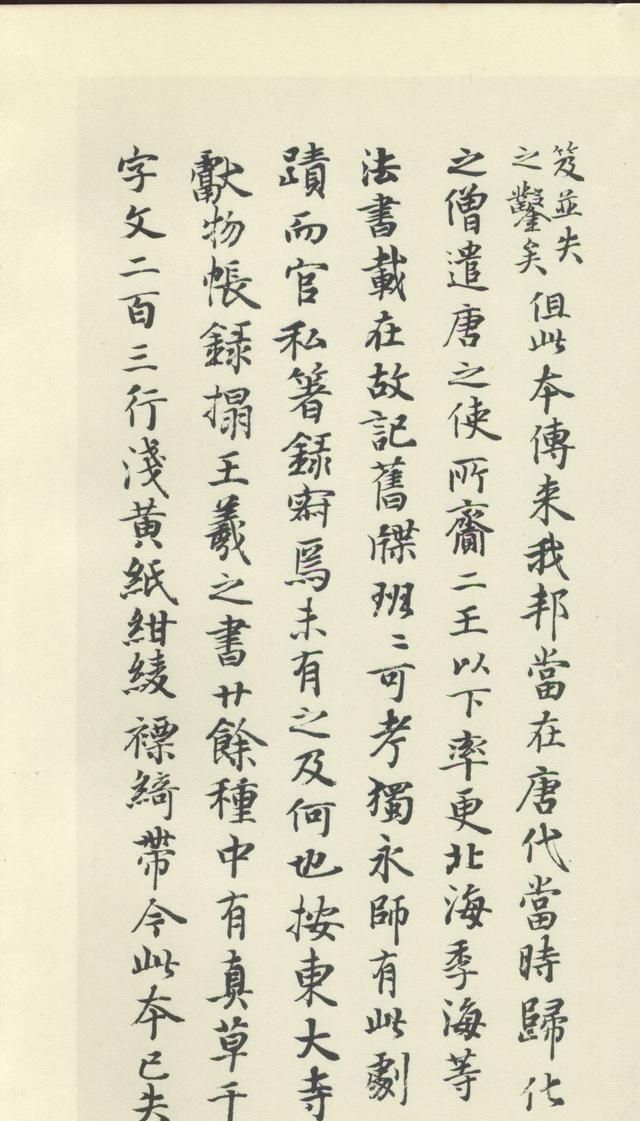 笈並失
之鑿矣
但此本傳来我邦當在唐代當時歸化
之僧遣唐之使所齎二王以下率更北海季海等
法書載在故記舊牒班〻可考獨永師有此劇
蹟而官私著録寂焉未有之及何也按東大寺
獻物帳録搨王羲之書廿餘種中有真草千
字文二百三行淺黄紙紺綾褾綺帶今此本已失